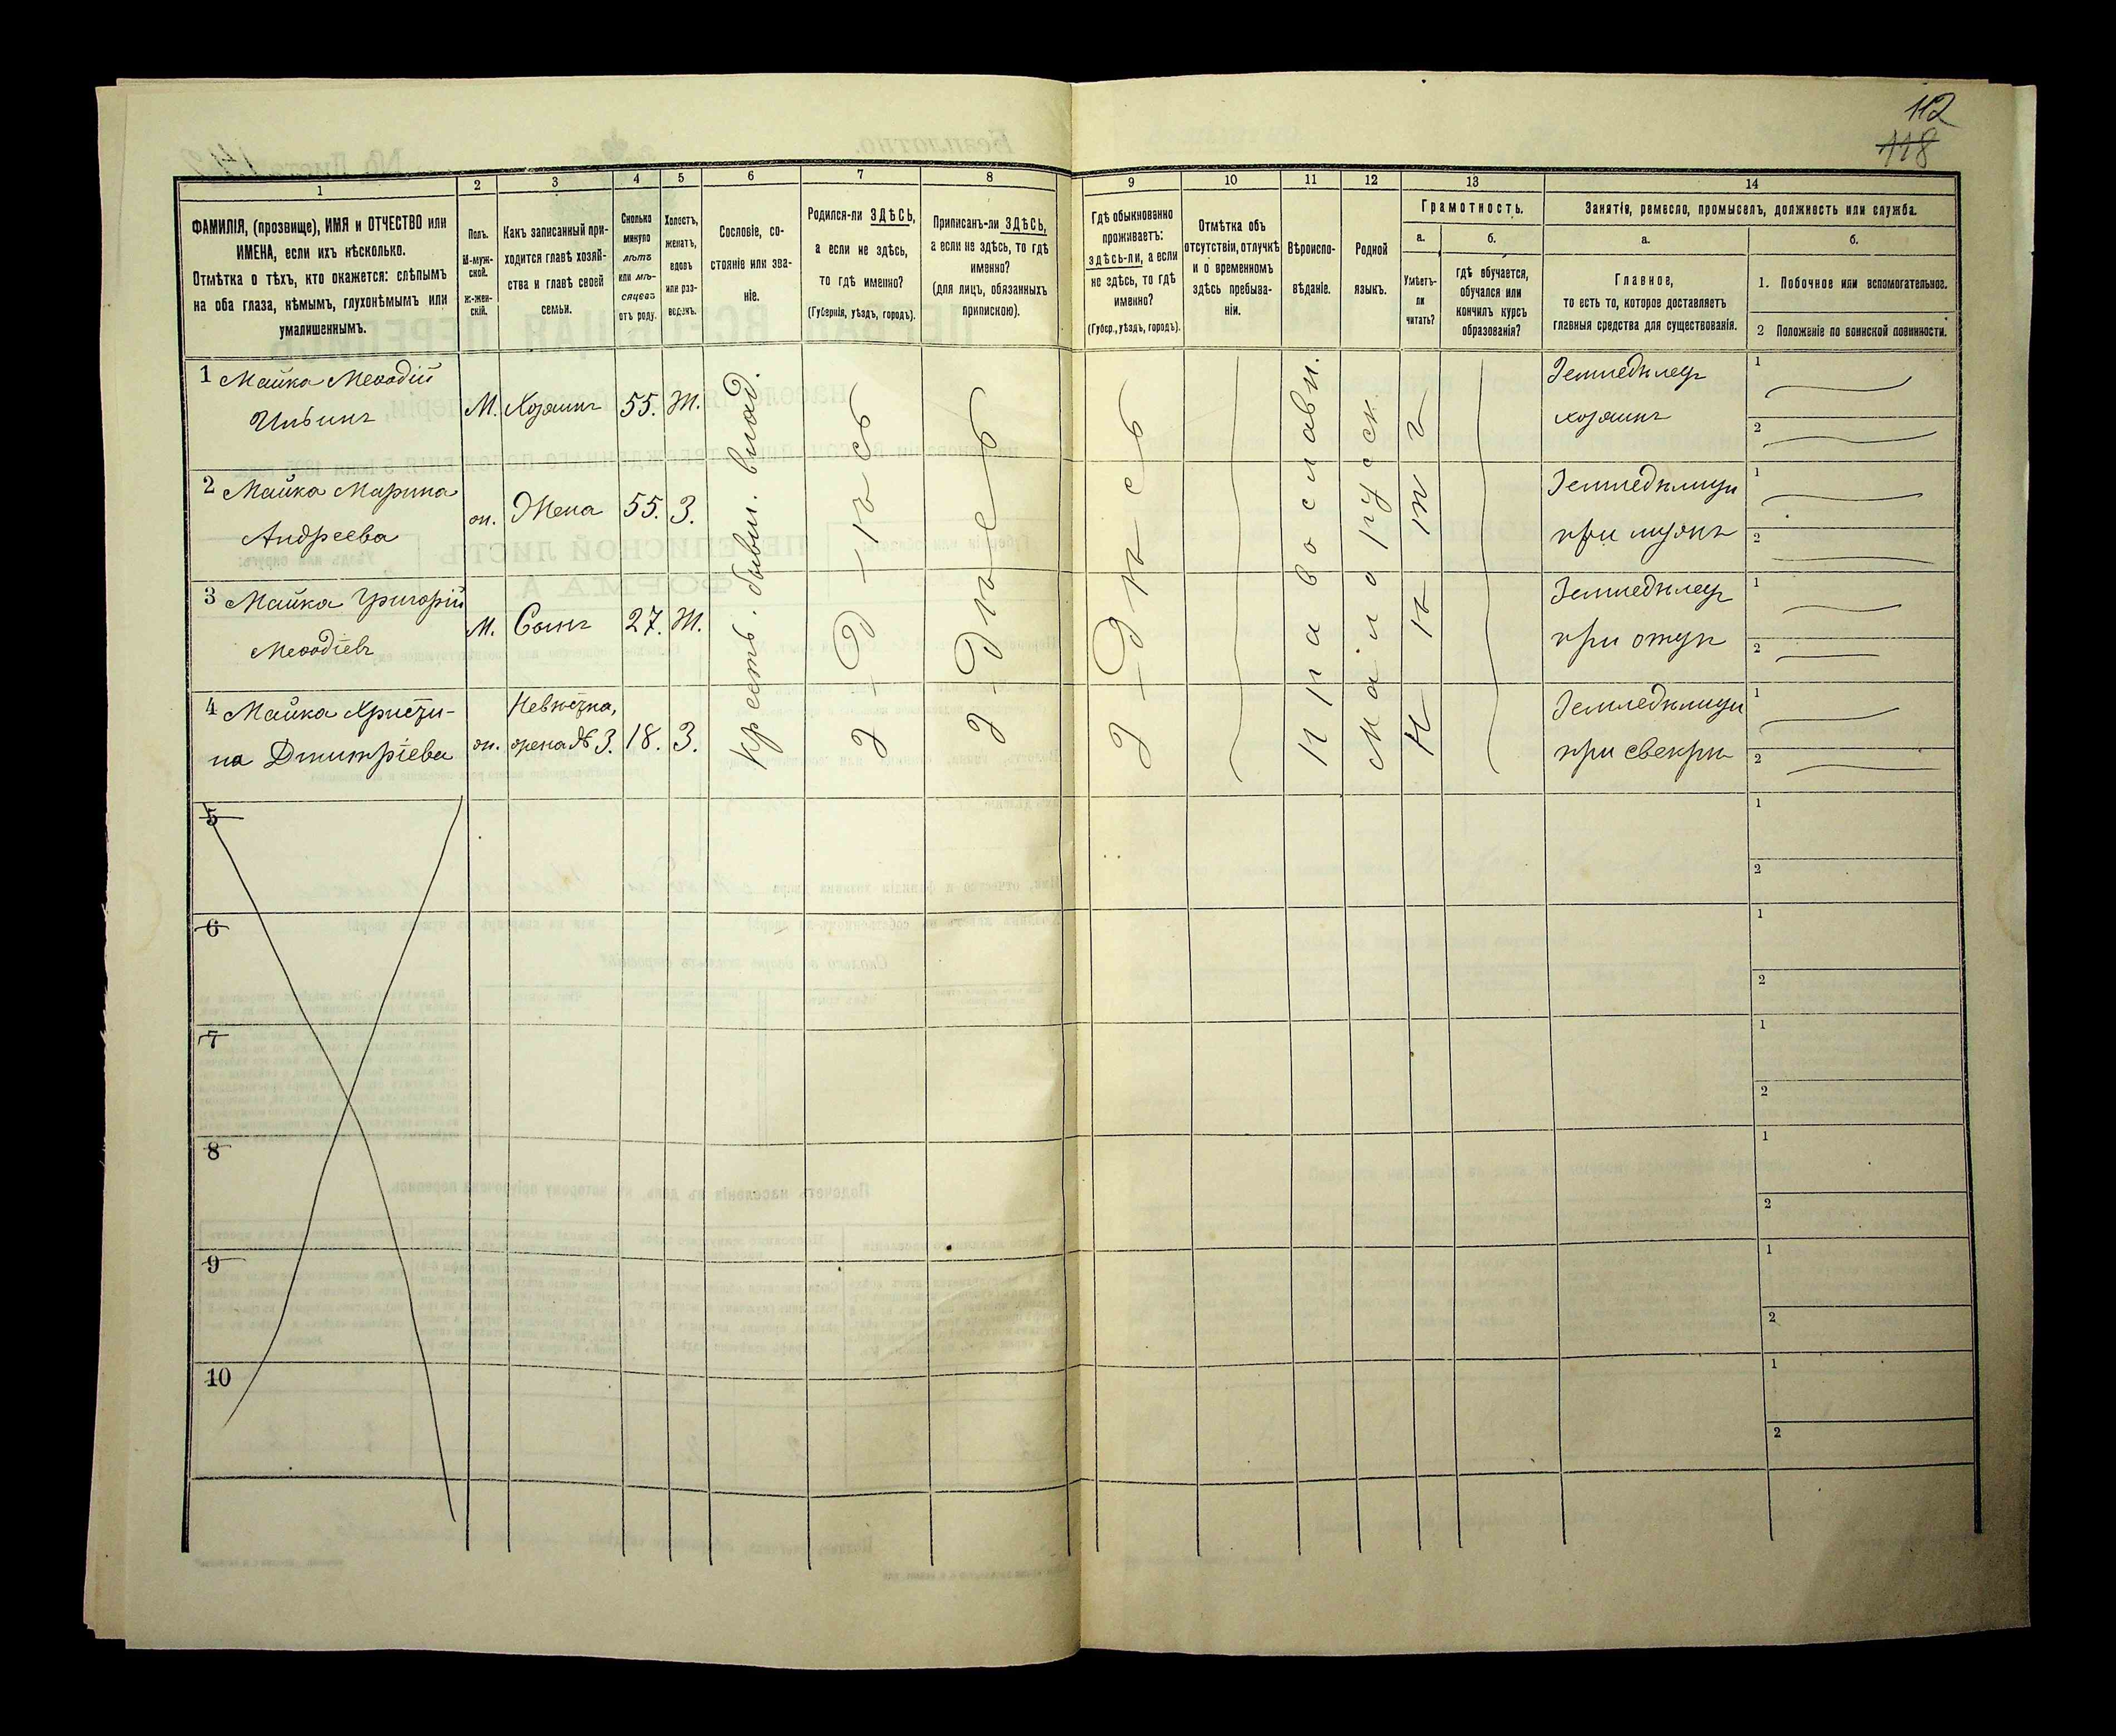 112
118
1
2
3
4
5
6
7
8
9
10
11
12
13
14
ФАМИЛІЯ, (прозвище), ИМЯ и ОТЧЕСТВО или
ИМЕНА, если ихъ нѣсколько.
Отмѣтка о тѣхъ, кто окажется: слѣпымъ
на оба глаза, нѣмымъ, глухонѣмымъ или
умалишеннымъ.
Полъ.
М-муж-
ской.
ж-жен-
скій.
Какъ записанный при-
ходится главѣ хозяй-
ства и главѣ своей
семьи.
Сколько
минуло
лѣтъ
или мѣ-
сяцевъ
отъ роду.
Холостъ,
женатъ,
вдовъ
или раз-
веденъ.
Сословіе, со-
стояніе или зва-
ніе.
Родился-ли ЗДѢСЬ,
а если не здѣсь,
то гдѣ именно?
(Губернія, уѣздъ, городъ).
Приписанъ-ли ЗДѢСЬ,
а если не здѣсь, то гдѣ
именно?
(для лицъ, обязанныхъ
припискою).
Гдѣ обыкновенно
проживаетъ:
здѣсь-ли, а если
не здѣсь, то гдѣ
именно?
(Губер., уѣздъ, городъ).
Отмѣтка объ
отсутствіи, отлучкѣ
и о временномъ
здѣсь пребыва-
ніи.
Вѣроиспо-
вѣданіе.
Родной
языкъ.
Грамотность.
а.
Умѣетъ-
ли
читать?
б.
гдѣ обучается,
обучался или
кончилъ курсъ
образованія?
Занятіе, ремесло, промыселъ, должность или служба.
а.
Главное,
то есть то, которое доставляетъ
главныя средства для существованія.
б.
1. Побочное или вспомогательное.
2 Положеніе по воинской повинности.
1 Майка Меѳодій
Ильинъ
М. Хозяинъ 55. Ж.
Земледѣлец
хозяинъ
1
2
2 Майка Марина
Андреева
ж. Жена 55. З.
Земледѣлица
при мужѣ
1
2
3 Майка Григорій
Меѳодіевъ
М. Сынъ 27. Ж.
Земледѣлец
при отцѣ
1
2
4 Майка Христи-
на Дмитріева
ж. Невѣстка,
жена № 3. 18. З.
Земледѣлица
при свекрѣ
1
2
Крестъ. бывш. влад.
Здѣсь
Здѣсь
Здѣсь
Православн.
Малорусск.
Нѣтъ
5
1
2
6
1
2
7
1
2
8
1
2
9
1
2
10
1
2